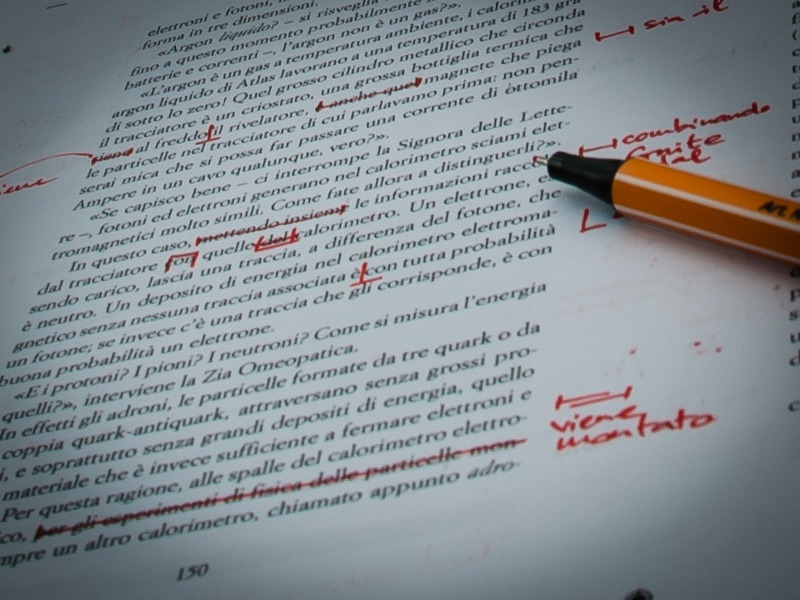 elettroni e fotoni,
forma in tre dimensioni.
«Argon liquido? – si risveglia
fino a questo momento probabilmente
batterie e correnti –, l'argon non è un gas?».
«L'argon è un gas a temperatura ambiente, i calori
argon liquido di Atlas lavorano a una temperatura di 183 gra
di sotto lo zero! Quel grosso cilindro metallico che circonda
il tracciatore è un criostato, una grossa bottiglia termica che
al freddo il rivelatore, e anche quel magnete che piega
le particelle nel tracciatore di cui parlavamo prima: non pen-
serai mica che si possa far passare una corrente di ottomila
Ampere in un cavo qualunque, vero?».
«Se capisco bene – ci interrompe la Signora delle Lette-
re –, fotoni ed elettroni generano nel calorimetro sciami elet-
tromagnetici molto simili. Come fate allora a distinguerli?».
In questo caso, mettendo insieme le informazioni racco
dal tracciatore con quelle del calorimetro. Un elettrone,
sendo carico, lascia una traccia, a differenza del fotone, che
è neutro. Un deposito di energia nel calorimetro elettroma-
gnetico senza nessuna traccia associata è con tutta probabilità
un fotone; se invece c'è una traccia che gli corrisponde, è con
buona probabilità un elettrone.
«E i protoni? I pioni? I neutroni? Come si misura l'energia
quelli?», interviene la Zia Omeopatica.
In effetti gli adroni, le particelle formate da tre quark o da
coppia quark-antiquark, attraversano senza grossi pro-
i, e soprattutto senza grandi depositi di energia, quello
materiale che è invece sufficiente a fermare elettroni e
Per questa ragione, alle spalle del calorimetro elettro-
ico, per gli esperimenti di fisica delle particelle mon-
mpre un altro calorimetro, chiamato appunto adro-
150
sin il
combinando
viene
montato